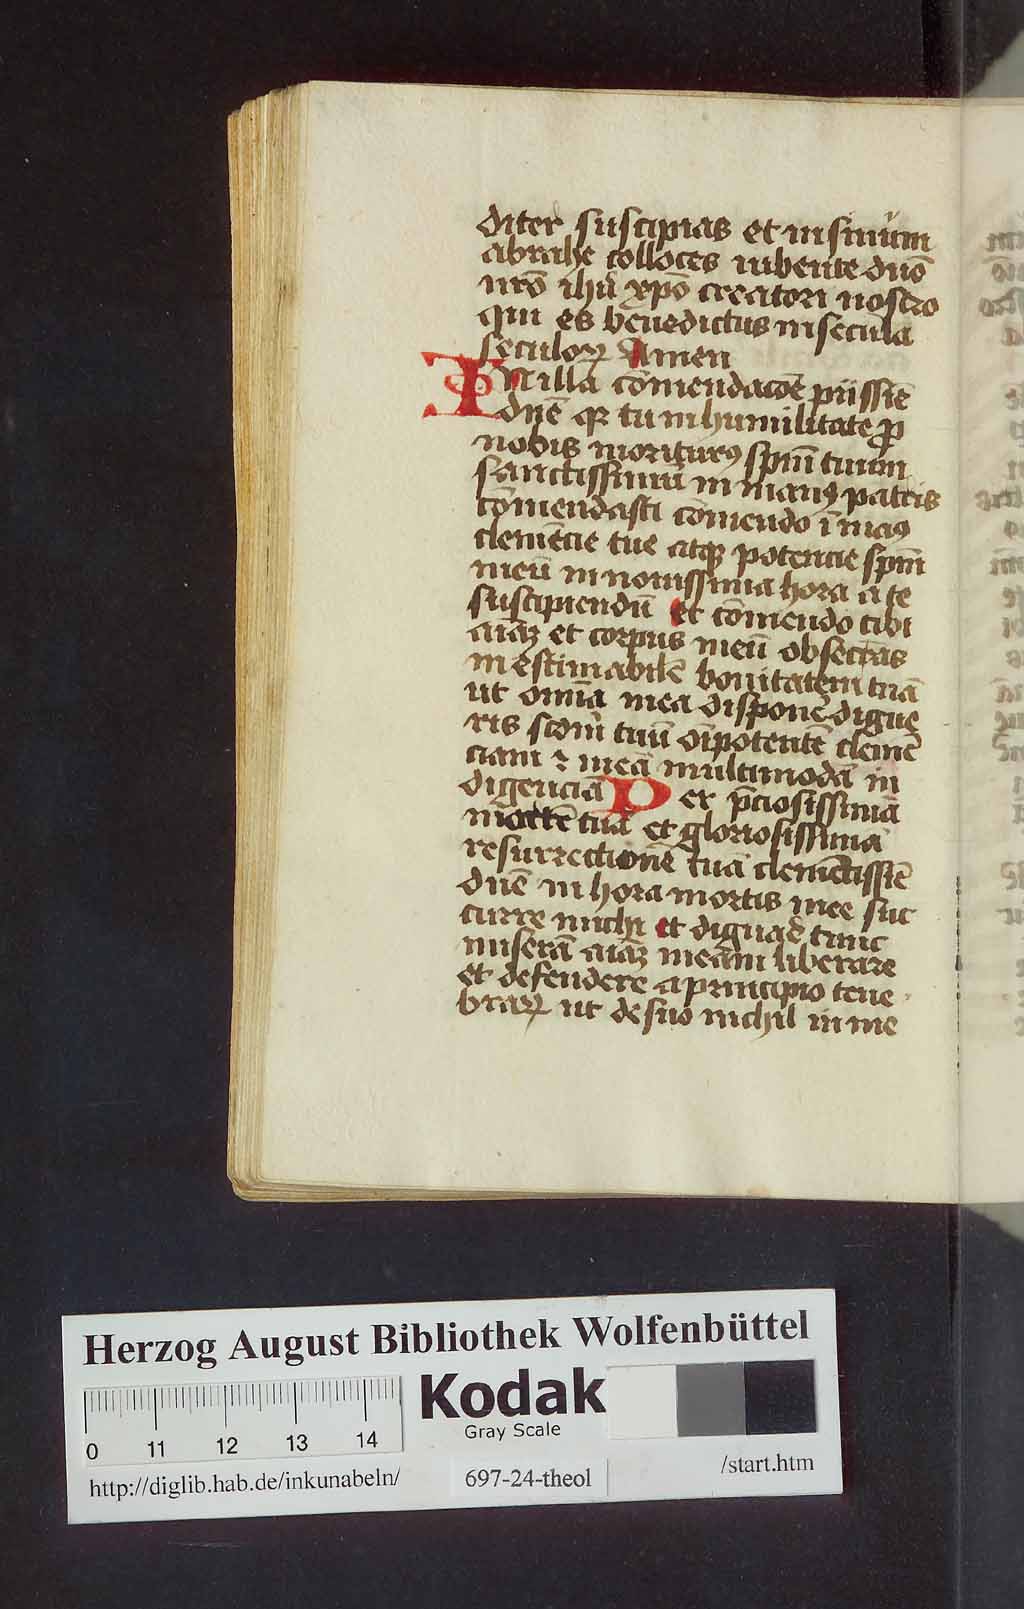 diter suscipias et in sinūm
abrahe colloces iubente dnō
nrō ihū xpō creatori nostro
qui es benedictus in secula
seculoꝝ Amen
In illa cōmendacōe piissie᷒
dnē qꝛ tu in humilitate ꝓ
nobis moriturꝯ spm̄ tuum
sanctissimū in manꝯ patris
cōmendasti cōmendo ī maꝯ
clemēcie tue atqꝫ potencie spm̄
meū in nouissima hora a te
suscipiendū et cōmendo tibi
aīaꝫ et corpus meū obsecrās
inestimabilē bonitatem tuā
ut omīa mea disponē digne
ris scdm̄ tuū oīpotentē clemē
ciam ⁊ meā multimodā in
digenciā Per p̄ciosissimā
mortē tuā et gloriosissimā
resurrectionē tuā clemētissiē
dnē in hora mortis mee suc
curre michi et dignaē tunc
miserā aīaꝫ meām liberare
et defendere a principio tene
braꝝ ut de suo nichil in me
Herzog August Bibliothek Wolfenbüttel
Kodak
Gray Scale
0 11 12 13 14
http://diglib.hab.de/inkunabeln/ 697-24-theol /start.htm